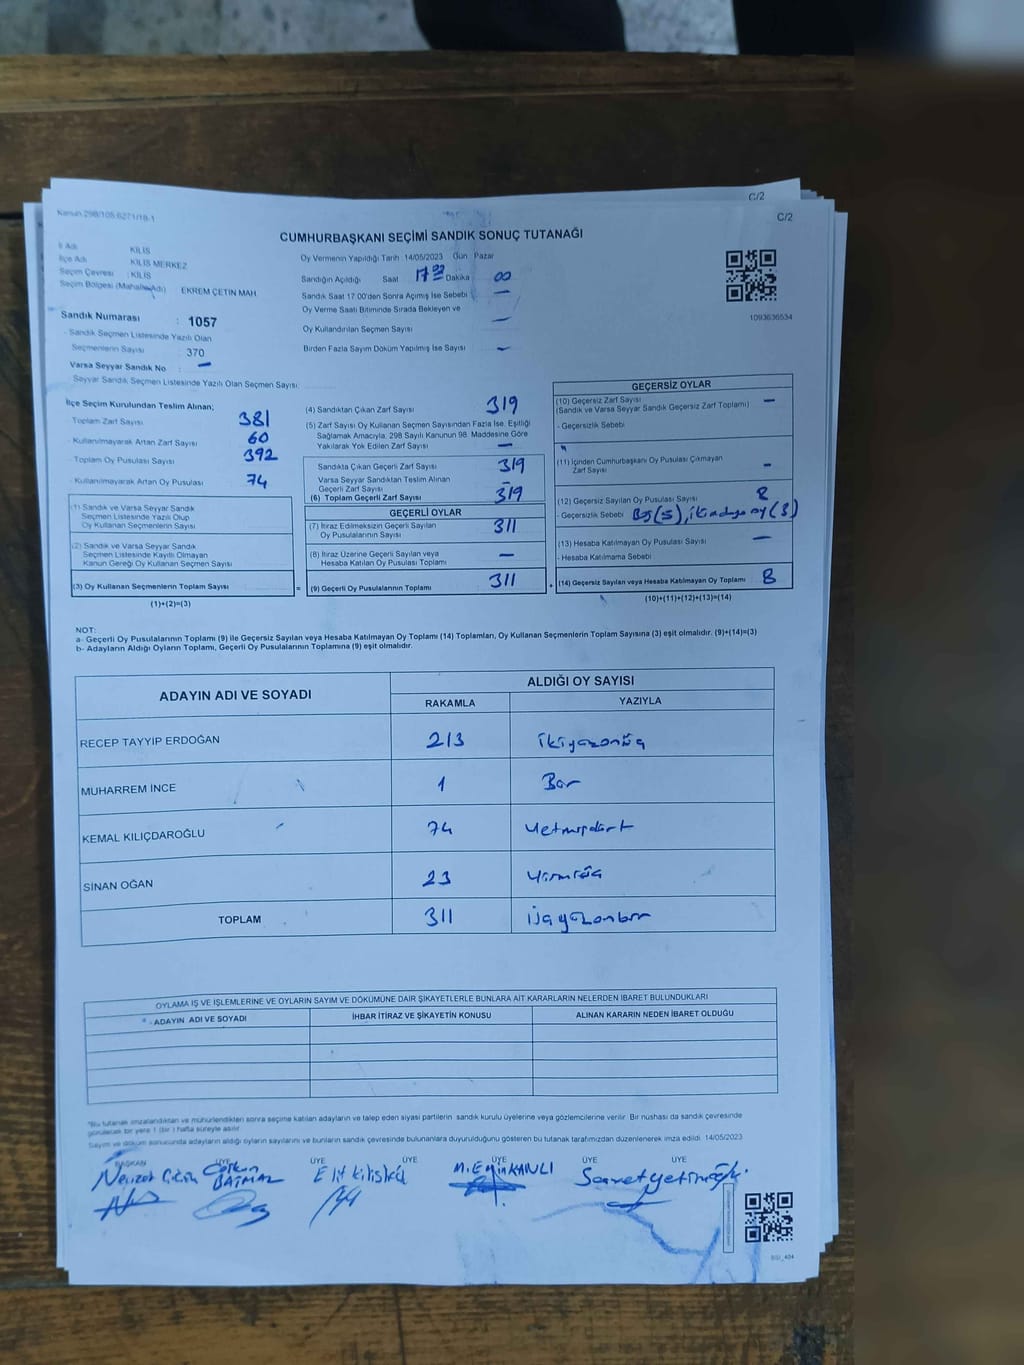 C/2
Kanun 298/105.6271/18-1
C/2
CUMHURBAŞKANI SEÇİMİ SANDIK SONUÇ TUTANAĞI
İl Adı KİLİS
İlçe Adı KİLİS MERKEZ
Seçim Çevresi : KİLİS
Seçim Bölgesi (Mahalle Adı) EKREM ÇETİN MAH
Sandık Numarası : 1057
- Sandık Seçmen Listesinde Yazılı Olan
Seçmenlerin Sayısı 370
Varsa Seyyar Sandık No : —
Seyyar Sandık Seçmen Listesinde Yazılı Olan Seçmen Sayısı:
Oy Vermenin Yapıldığı Tarih 14/05/2023 Gün Pazar
Sandığın Açıldığı Saat 17 00 Dakika 00
Sandık Saat 17:00'den Sonra Açımış İse Sebebi : —
Oy Verme Saati Bitiminde Sırada Bekleyen ve
Oy Kullandırılan Seçmen Sayısı —
Birden Fazla Sayım Döküm Yapılmış İse Sayısı —
1093636534
İlçe Seçim Kurulundan Teslim Alınan;
Toplam Zarf Sayısı 381
- Kullanılmayarak Artan Zarf Sayısı 60
- Toplam Oy Pusulası Sayısı 392
- Kullanılmayarak Artan Oy Pusulası 74
(1) Sandık ve Varsa Seyyar Sandık
Seçmen Listesinde Yazılı Olup
Oy Kullanan Seçmenlerin Sayısı
(2) Sandık ve Varsa Seyyar Sandık
Seçmen Listesinde Kayıtlı Olmayan
Kanun Gereği Oy Kullanan Seçmen Sayısı
(3) Oy Kullanan Seçmenlerin Toplam Sayısı
(1)+(2)=(3)
(4) Sandıktan Çıkan Zarf Sayısı 319
(5) Zarf Sayısı Oy Kullanan Seçmen Sayısından Fazla İse, Eşitliği
Sağlamak Amacıyla, 298 Sayılı Kanunun 98. Maddesine Göre
Yakılarak Yok Edilen Zarf Sayısı —
Sandıkta Çıkan Geçerli Zarf Sayısı 319
Varsa Seyyar Sandıktan Teslim Alınan
Geçerli Zarf Sayısı —
(6) Toplam Geçerli Zarf Sayısı 319
GEÇERLİ OYLAR
(7) İtiraz Edilmeksizin Geçerli Sayılan
Oy Pusulalarının Sayısı 311
(8) İtiraz Üzerine Geçerli Sayılan veya
Hesaba Katılan Oy Pusulası Toplamı —
= (9) Geçerli Oy Pusulalarının Toplamı 311
GEÇERSİZ OYLAR
(10) Geçersiz Zarf Sayısı —
(Sandık ve Varsa Seyyar Sandık Geçersiz Zarf Toplamı)
- Geçersizlik Sebebi
(11) İçinden Cumhurbaşkanı Oy Pusulası Çıkmayan
Zarf Sayısı —
(12) Geçersiz Sayılan Oy Pusulası Sayısı 8
- Geçersizlik Sebebi
(13) Hesaba Katılmayan Oy Pusulası Sayısı —
- Hesaba Katılmama Sebebi
+ (14) Geçersiz Sayılan veya Hesaba Katılmayan Oy Toplamı 8
(10)+(11)+(12)+(13)=(14)
NOT:
a- Geçerli Oy Pusulalarının Toplamı (9) ile Geçersiz Sayılan veya Hesaba Katılmayan Oy Toplamı (14) Toplamları, Oy Kullanan Seçmenlerin Toplam Sayısına (3) eşit olmalıdır. (9)+(14)=(3)
b- Adayların Aldığı Oyların Toplamı, Geçerli Oy Pusulalarının Toplamına (9) eşit olmalıdır.
ADAYIN ADI VE SOYADI ALDIĞI OY SAYISI
RAKAMLA YAZIYLA
RECEP TAYYİP ERDOĞAN 213 ikiyüzonüç
MUHARREM İNCE 1 Bir
KEMAL KILIÇDAROĞLU 74 Yetmişdört
SİNAN OĞAN 23 Yirmiüç
TOPLAM 311 üçyüzonbir
OYLAMA İŞ VE İŞLEMLERİNE VE OYLARIN SAYIM VE DÖKÜMÜNE DAİR ŞİKAYETLERLE BUNLARA AİT KARARLARIN NELERDEN İBARET BULUNDUKLARI
ADAYIN ADI VE SOYADI İHBAR İTİRAZ VE ŞİKAYETİN KONUSU ALINAN KARARIN NEDEN İBARET OLDUĞU
*Bu tutanak imzalandıktan ve mühürlendikten sonra seçime katılan adayların ve talep eden siyasi partilerin sandık kurulu üyelerine veya gözlemcilerine verilir. Bir nüshası da sandık çevresinde
görülecek bir yere 1 (bir) hafta süreyle asılır.
Sayım ve döküm sonucunda adayların aldığı oyların sayılarını ve bunların sandık çevresinde bulunanlara duyurulduğunu gösteren bu tutanak tarafımızdan düzenlenerek imza edildi. 14/05/2023
BAŞKAN ÜYE ÜYE ÜYE ÜYE ÜYE ÜYE
M. Emin KANLI